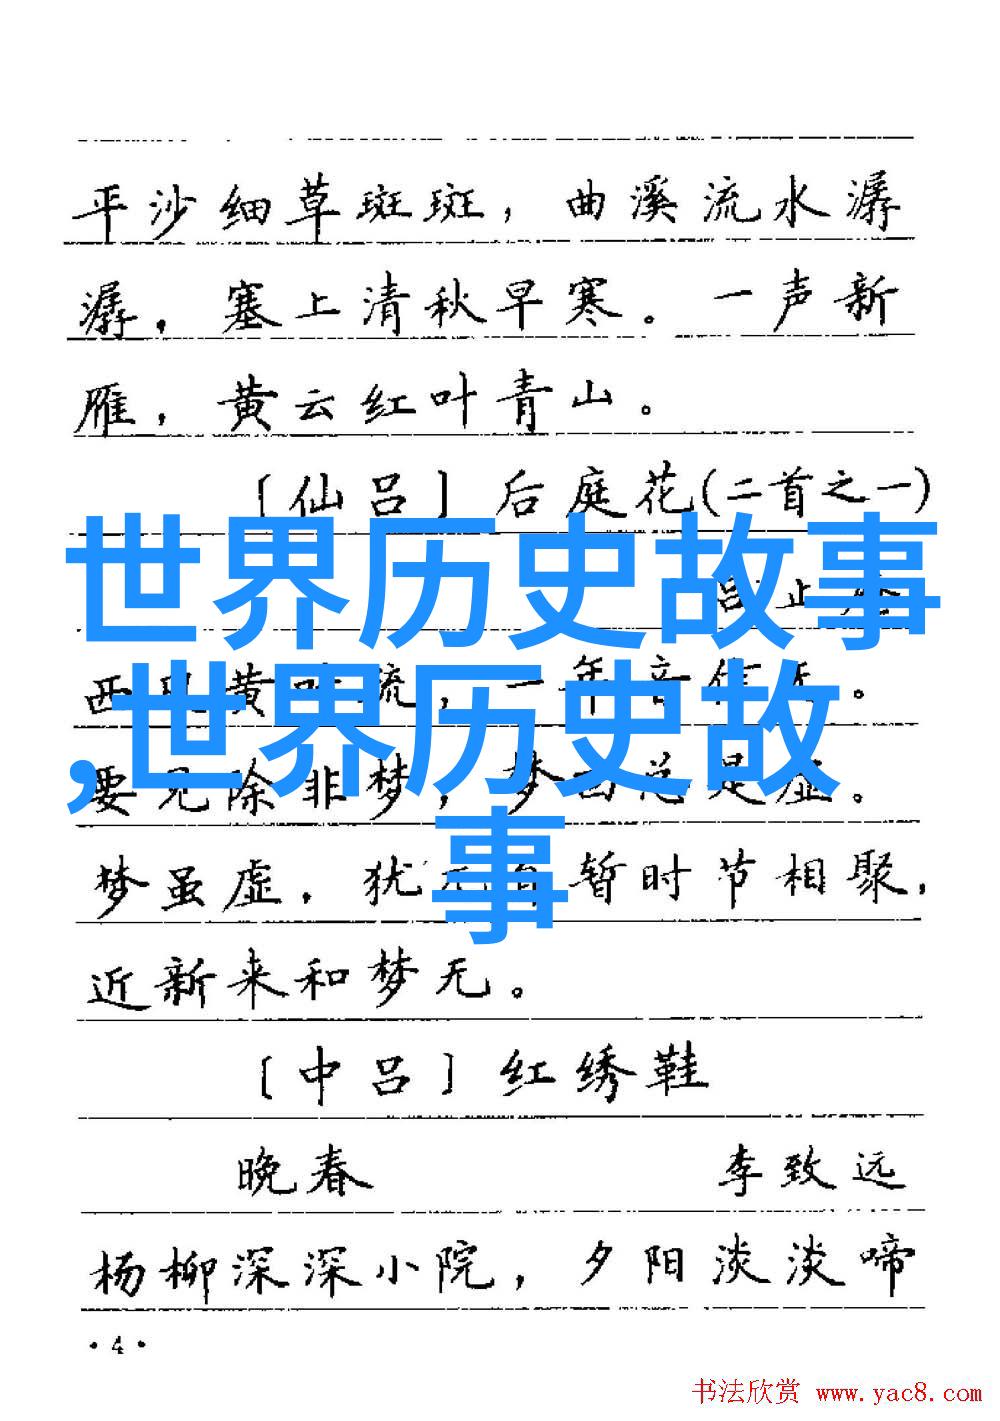 平沙细草斑斑，曲溪流水潺
潺，塞上清秋早寒。一声新
雁，黄云红叶青山。
〔仙吕〕后庭花(二首之一)
世界历史故事
吕止
西黄疏，一年音信。
,世界历史故
要见除非梦，梦总是虚。
事
梦虽虚，犹暂时节相聚，
近新来和梦无。
〔中吕〕红绣鞋
晚春 李致远
杨柳深深小院，夕阳淡淡啼
·4·
书法欣赏 www.yac8.com